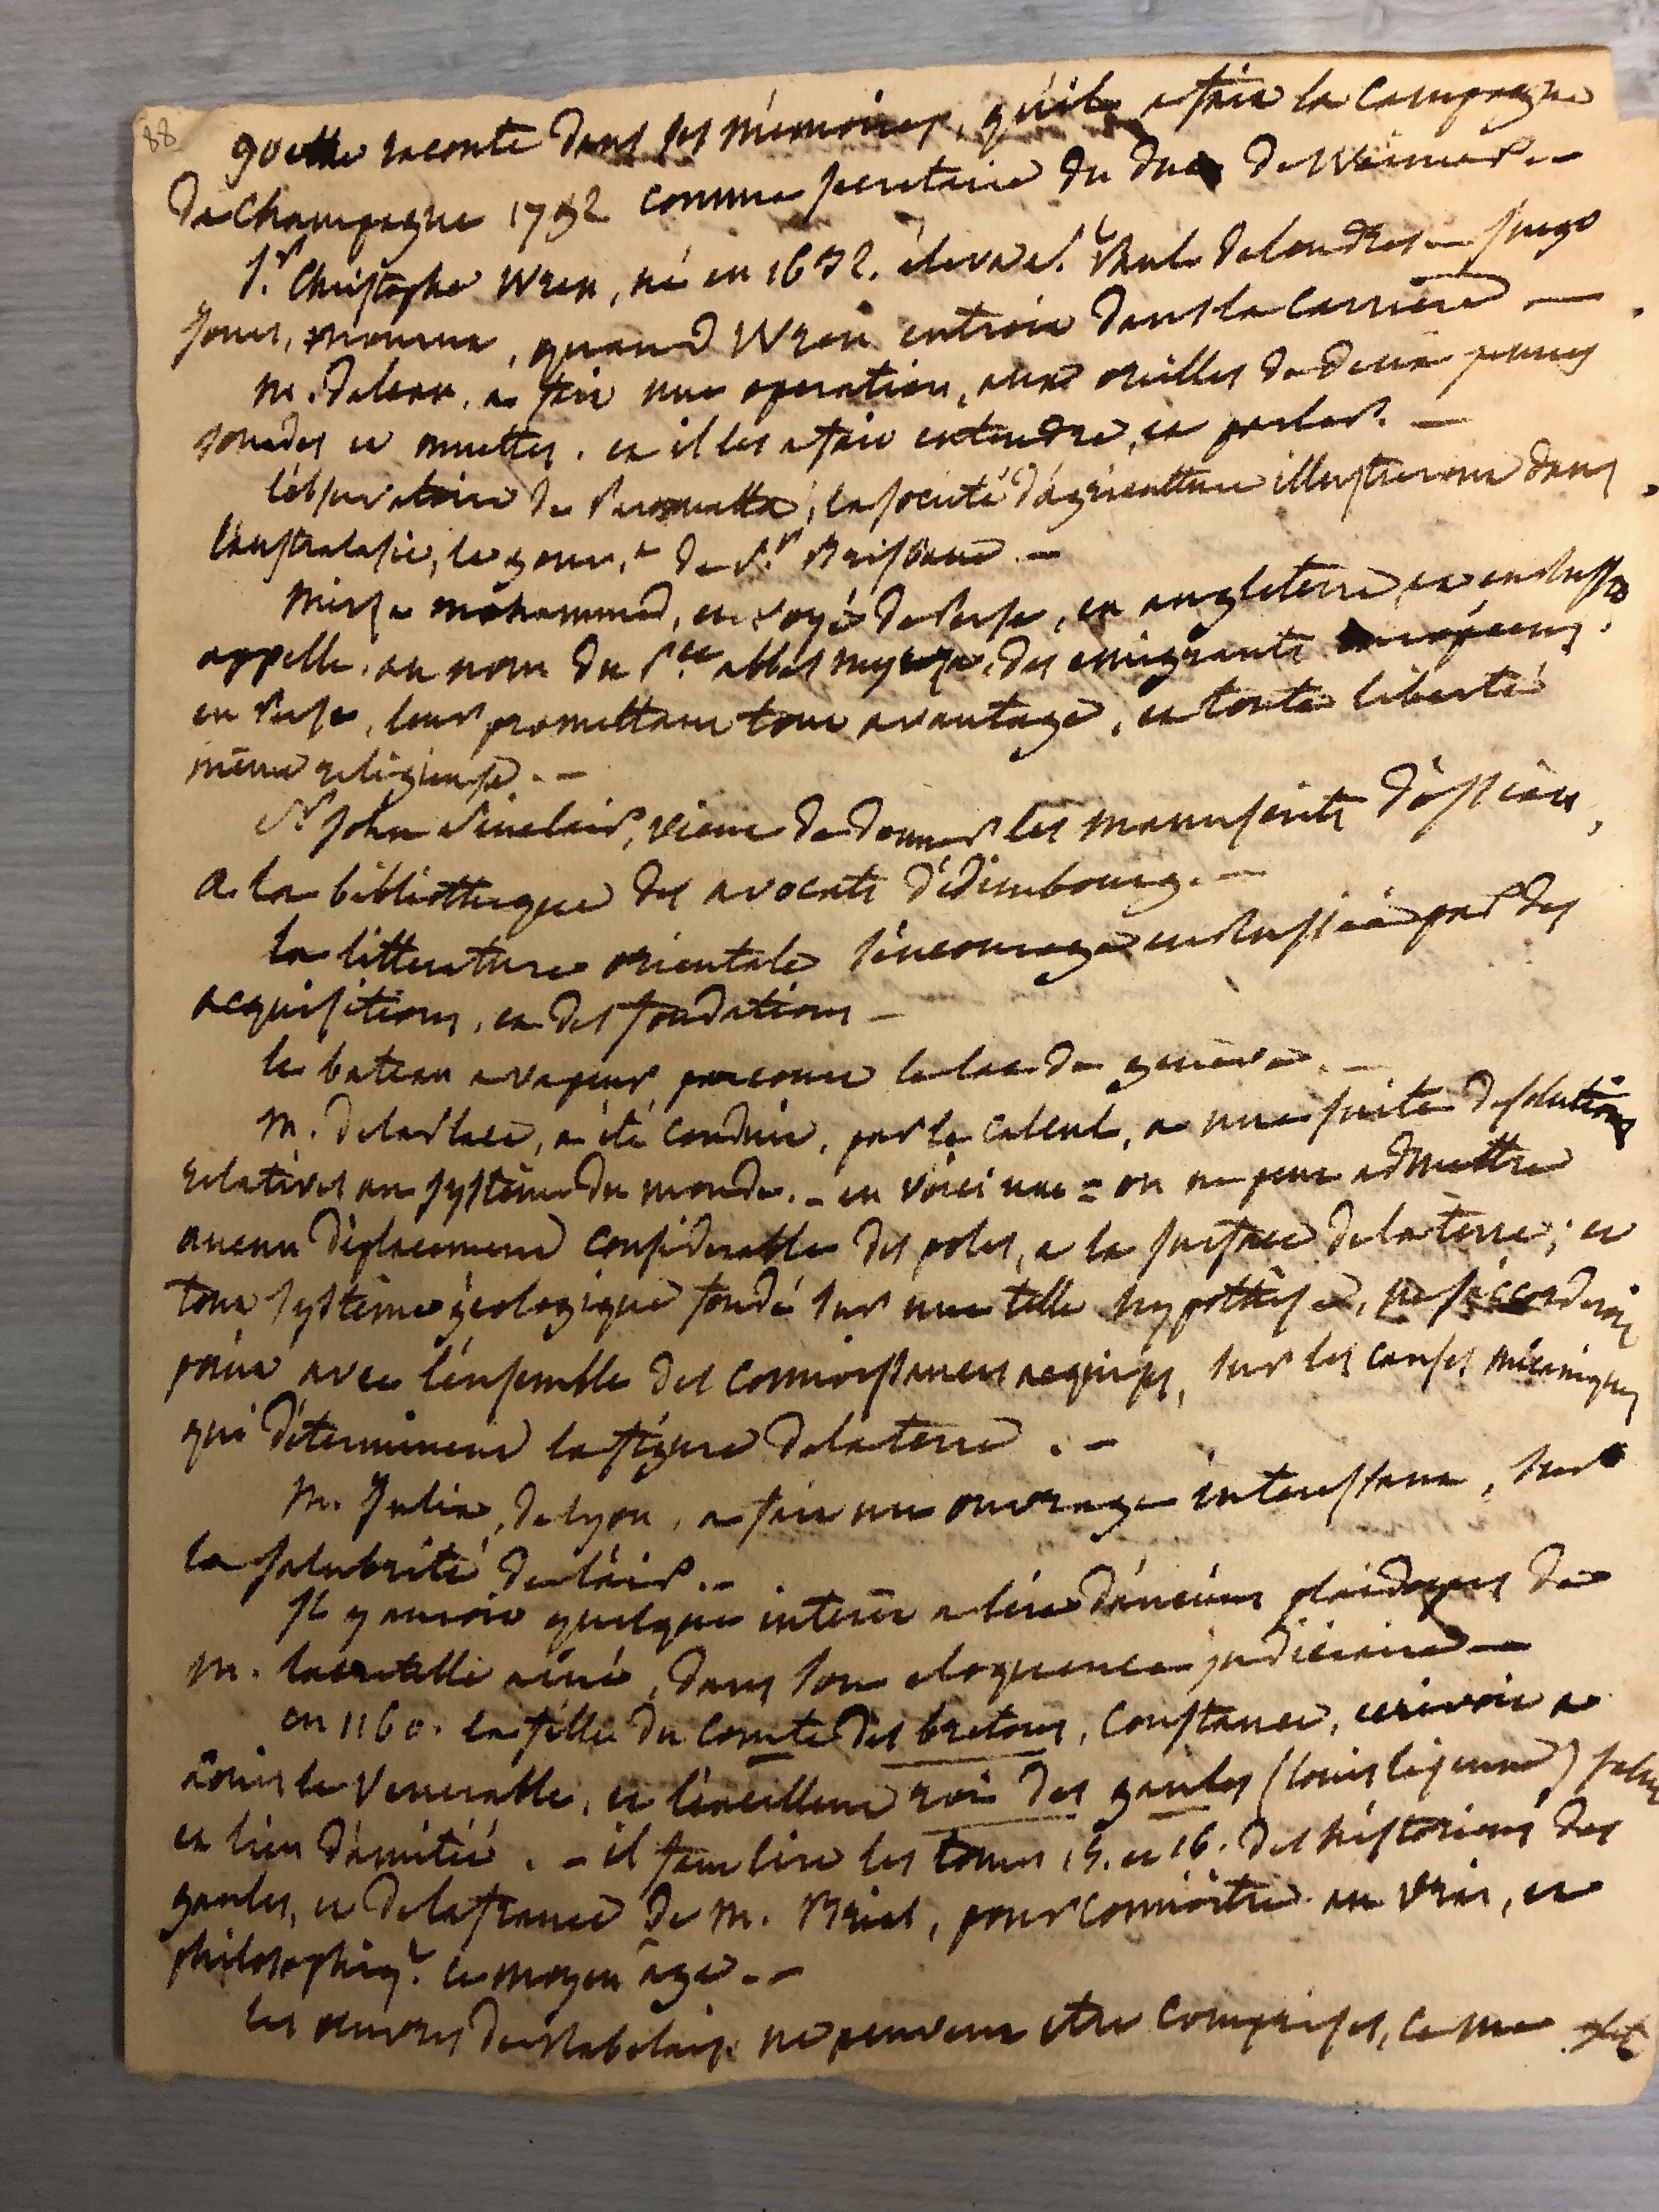 88
goethe raconte dans ses mémoires, qu'il a fait la campagne
de champagne 1792 comme secretaire du duc de Weimar. —
Sr. Christophe Wren, né en 1632. éleva St. Paul de londres — Inigo
Jones, mourut, quand Wren entroit dans la carriere —
m. deleau, a fait une operation, aux oreilles de deux jeunes
sourdes et muettes. et il les a fait entendre, et parler. —
l'observatoire de Paramatta, la société d'agriculture illustreront dans
l'australasie, le gouv.t de Sr. Brisbane. —
Mirza mohammed, envoyé de Perse, en angleterre, et en Russie
appelle, au nom du P.ce abbas myrza, des emigrants européens.
en Perse, leur promettant tout avantage, et toute liberté
même religieuse. —
Sr John Sinclair, vient de donner les manuscrits d'ossian,
a la bibliotheque des avocats d'édimbourg. —
la litterature orientale s'encourage en Russie par des
acquisitions, et des fondations —
le bateau a vapeur parcourt le lac de genève. —
M. de la Place, a été conduit, par le calcul, a une suite de solutions
relatives au système du monde. – en voici une = on ne peut admettre
aucun déplacement considerable des poles, a la surface de la terre; et
tout système géologique fondé sur une telle hypothèse, ne s'accorderoit
point avec l'ensemble des connoissances acquises, sur les causes mécaniques
qui déterminent la figure de la terre. —
M. Julia, de lyon, a fait un ouvrage interessant, sur
la salubrité de l'air. —
Il y auroit quelque interêt a lire d'anciens plaidoyers de
M. lacretelle ainé, dans son eloquence judiciaire —
en 1160. la fille du comte des bretons, Constance, ecrivoit a
Louis le Venerable, et l'excellent roi des gaules (louis le jeune) salut
et lien d'amitié. – il faut lire les tomes 15. et 16. des historiens des
gaules, et de la france de M. Brial, pour connoitre au vrai, et
philosophiq.t le moyen âge. —
les œuvres de Rabelais ne peuvent etre comprises, comme